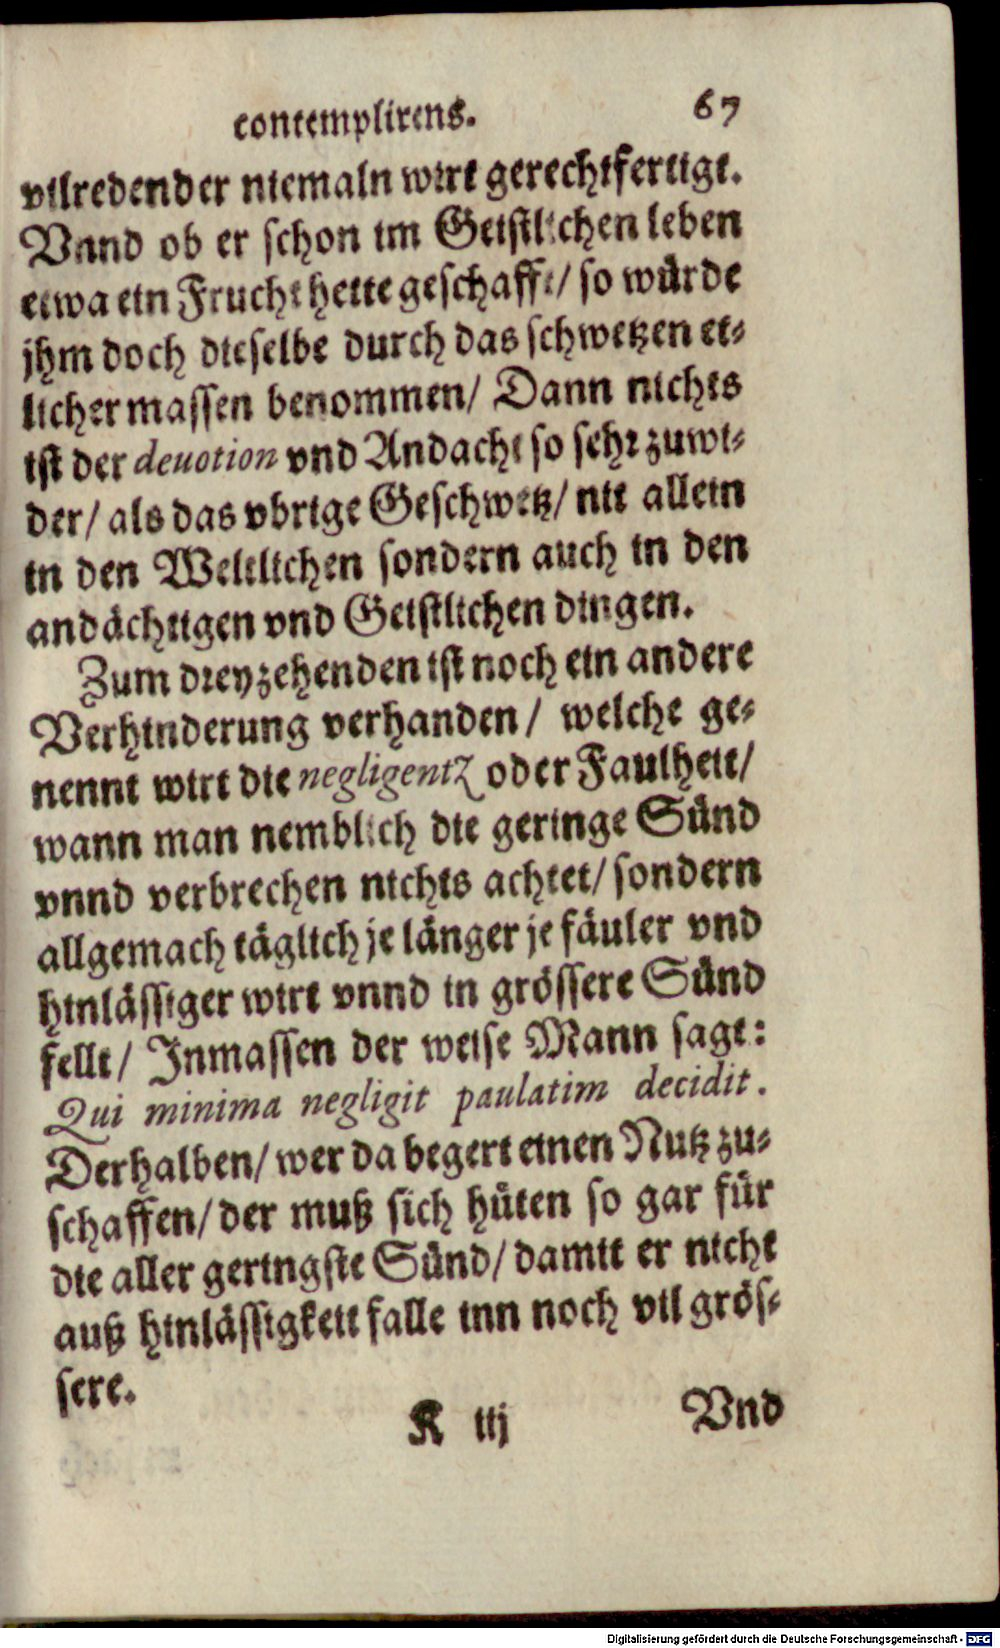 contemplirens. 67
vilredender niemaln wirt gerechtfertigt.
Vnnd ob er schon im Geistlichen leben
etwa ein Frucht hette geschafft/ so würde
jhm doch dieselbe durch das schwetzen et-
licher massen benommen/ Dann nichts
ist der deuotion vnd Andacht so sehr zuwi-
der/ als das vbrige Geschwetz/ nit allein
in den Weltlichen sondern auch in den
andächtigen vnd Geistlichen dingen.
Zum dreyzehenden ist noch ein andere
Verhinderung verhanden/ welche ge-
nennt wirt die negligentz oder Faulheit/
wann man nemblich die geringe Sünd
vnnd verbrechen nichts achtet/ sondern
allgemach täglich je länger je fäuler vnd
hinlässiger wirt vnnd in grössere Sünd
fellt/ Inmassen der weise Mann sagt:
Qui minima negligit paulatim decidit.
Derhalben/ wer da begert einen Nutz zu-
schaffen/ der muß sich hüten so gar für
die aller geringste Sünd/ damit er nicht
auß hinlässigkeit falle inn noch vil grös-
sere.
K iij Vnd
Digitalisierung gefördert durch die Deutsche Forschungsgemeinschaft - DFG